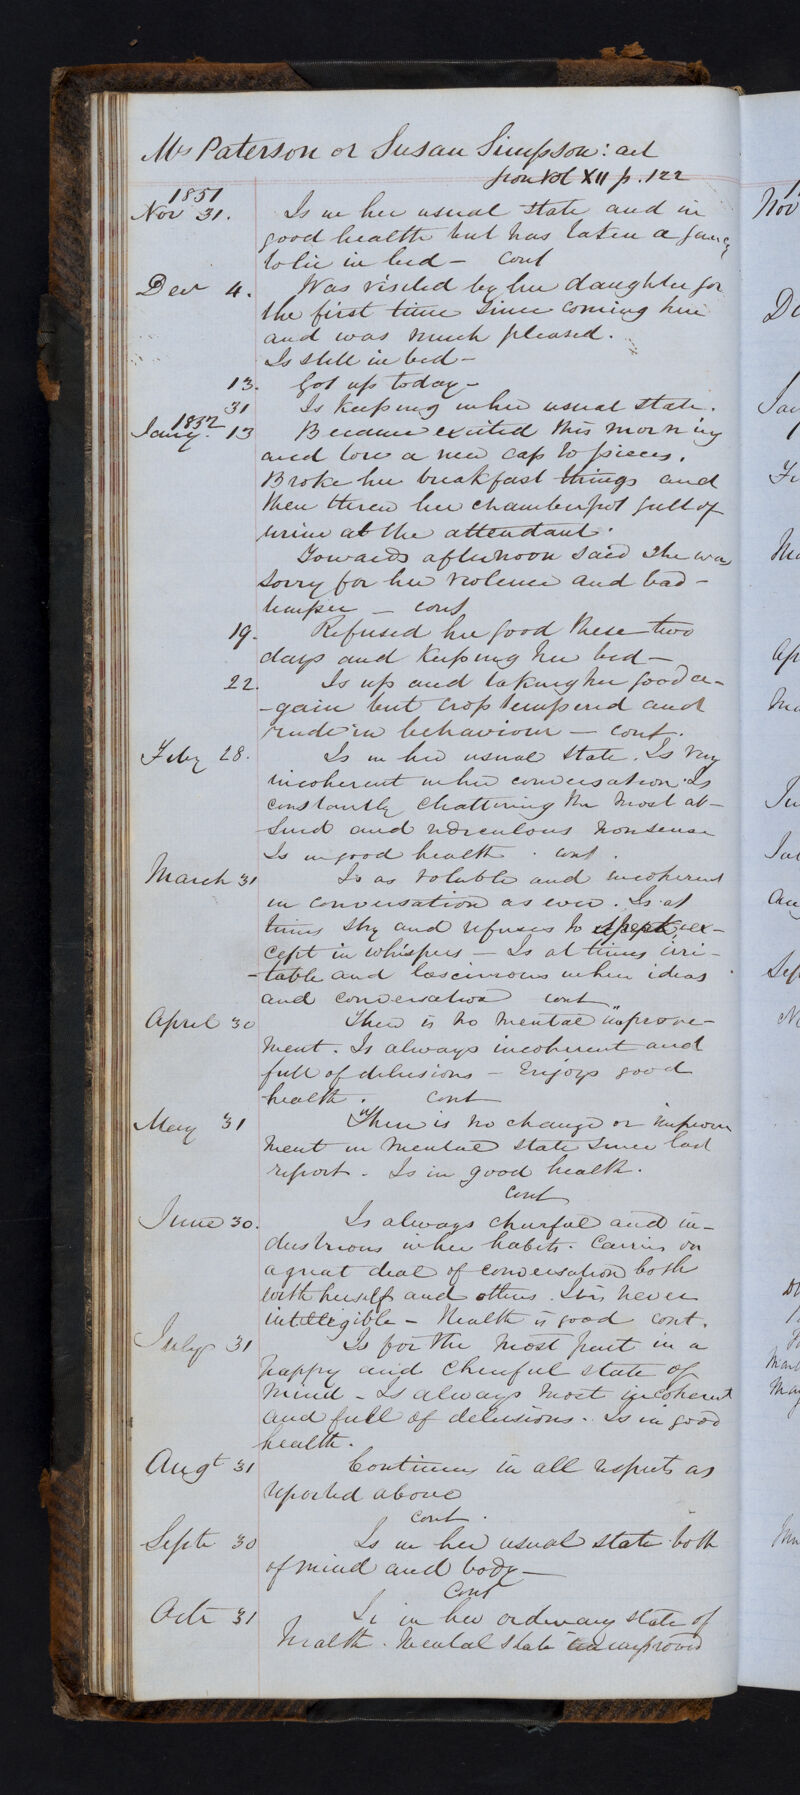 Mrs Paterson or Susan Simpson: aet
from Vol XII p. 122
1851
Nov 31. Is in her usual state and in
good health but has taken a fancy
to lie in bed – cont
Decr 4. Was visited by her daughter for
the first time since coming here
and was much pleased.
Is still in bed –
13. Got up today –
31 Is keeping in her usual state.
1852
Jany. 13 Became excited this morning
and tore a new cap to pieces.
Broke her breakfast things and
then threw her chamberpot full of
urine at the attendant.
Towards afternoon said she was
sorry for her violence and bad-
temper – cont
19. Refused her food these two
days and keeping her bed –
22. Is up and taking her food a-
-gain but cross tempered and
rude in behaviour – cont.
Feby 28. Is in her usual state. Is very
incoherent in her conversation. Is
constantly chattering the most ab-
surd and ridiculous nonsense
Is in good health. cont.
March 31 Is as voluble and incoherent
in conversation as ever. Is at
times shy and refuses to speak, ex-
cept in whispers – Is at times irri-
-table and lascivious in her ideas
and conversation cont
April 30 There is no mental improve-
ment. Is always incoherent and
full of delusions – Enjoys good
health. cont
May 31 There is no change or improve
ment in mental state since last
report. Is in good health.
cont
June 30. Is always cheerful and in-
dustrious in her habits. Carries on
a great deal of conversation both
with herself and others. Is never
intelligible – Health is good cont.
July 31 Is for the most part in a
happy and cheerful state of
mind – Is always most incoherent
and full of delusions. Is in good
health.
Augt 31 Continues in all respects as
reported above
cont.
Septr 30 Is in her usual state both
of mind and body –
Cont
Octr 31 Is in her ordinary state of
health. Mental state unimproved